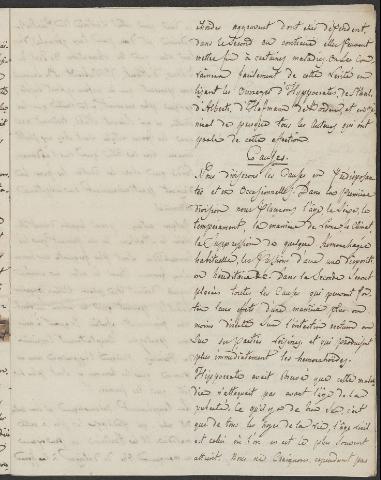 dans le second au contraire elle peuvent
mettre fin à certaines maladies. on se con
vaincra facilement de cette vérité en
lisant les ouvrages d'Hyppocrate, de Stahl,
d'Alberti, d'Hofmann de Bordeu, et en gé
néral de presque tous les auteurs qui ont
parlé de cette affection
Causes.
Nous diviserons les causes en Prédisposan
tes et en Occasionnelles; Dans la Première
division nous Placerons l'âge le sexe, le
tempérament, la manière de vivre le Climat,
la suppression de quelque hémorrhagie
habituelle, les Passions d'ame une disposition
ou héréditaire &c. dans la seconde seront
placées toutes les causes qui peuvent por
ter leurs effets d'une manière plus ou
moins directe sur l'intestin rectum ou
sur ses parties voisines, et qui produisent
plus immédiatement les hémorrhoïdes.
Hyppocrate avait observé que cette mala
die n'attaquait pas avant l'âge de la
puberté. Ce qu'il y a de bien sur c'est
que de tous les âges de la vie, l'âge viril
est celui où l'on en est le plus souvent
atteint. Nous ne Craignons cependant pas